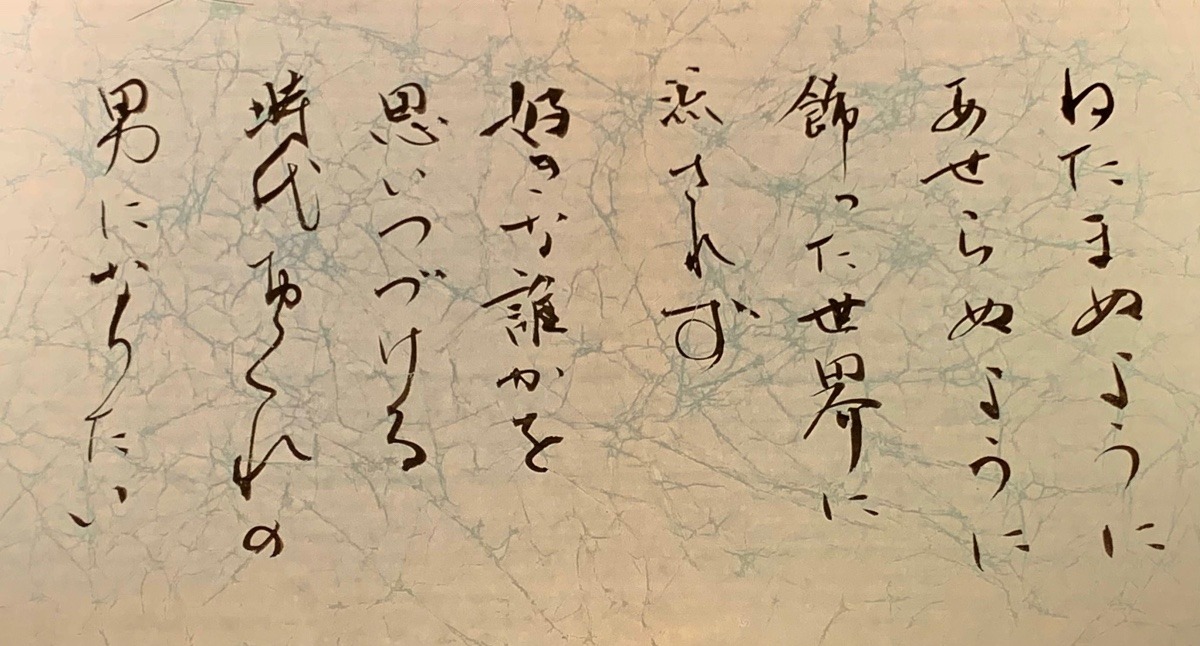 ねたまぬように
あせらぬように
飾った世界に
流されず
好きな誰かを
思いつづける
時代おくれの
男になりたい